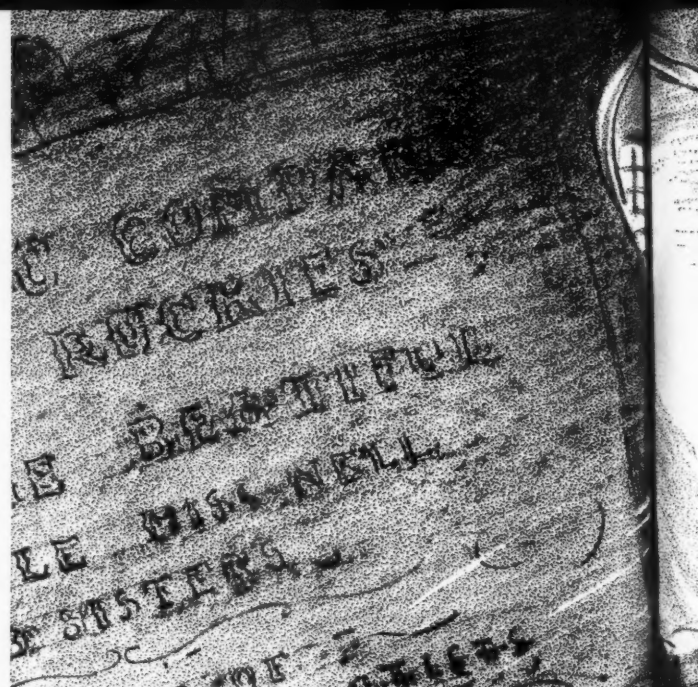 C COMPANY
ROCKIES
BEAUTIFUL
LE MISS NELL
SISTERS
OF